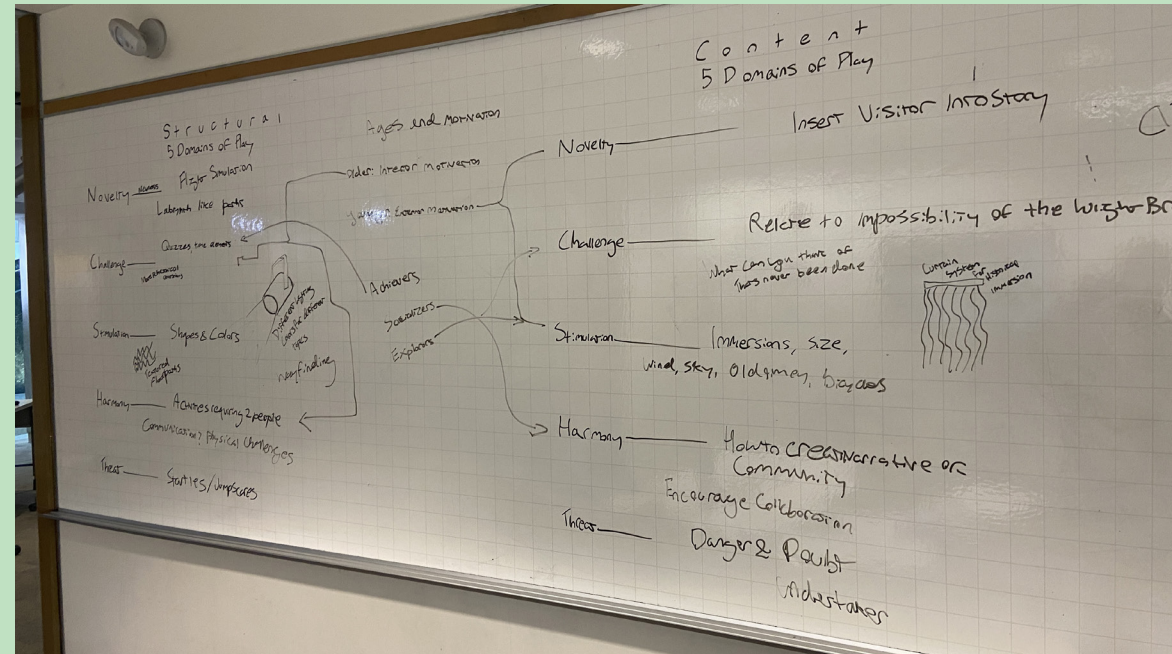 Structural
5 Domains of Play
Novelty
Newness
Flight Simulation
Labyrinth like paths
Challenge
Quizzes, time
Stimulation
Shapes & Colors
Textured
Floor
Harmony
Activities requiring 2 people
Communication? Physical Challenges
Threat
Startles/Jumpscares
Wayfinding
Ages and Motivation
Older: Interior Motivation
Exterior Motivation
Achievers
Socializers
Explorers
Content
5 Domains of Play
Novelty
Insert Visitor Into Story
Challenge
Relate to impossibility of the Wright Br
What can you think of
thats never been done
Curtain
System
For
Immersion
Stimulation
Immersions, size,
wind, sky, bicycles
Harmony
How to Creat Narrative or
Community
Encourage Collaboration
Threat
Danger & Doubt